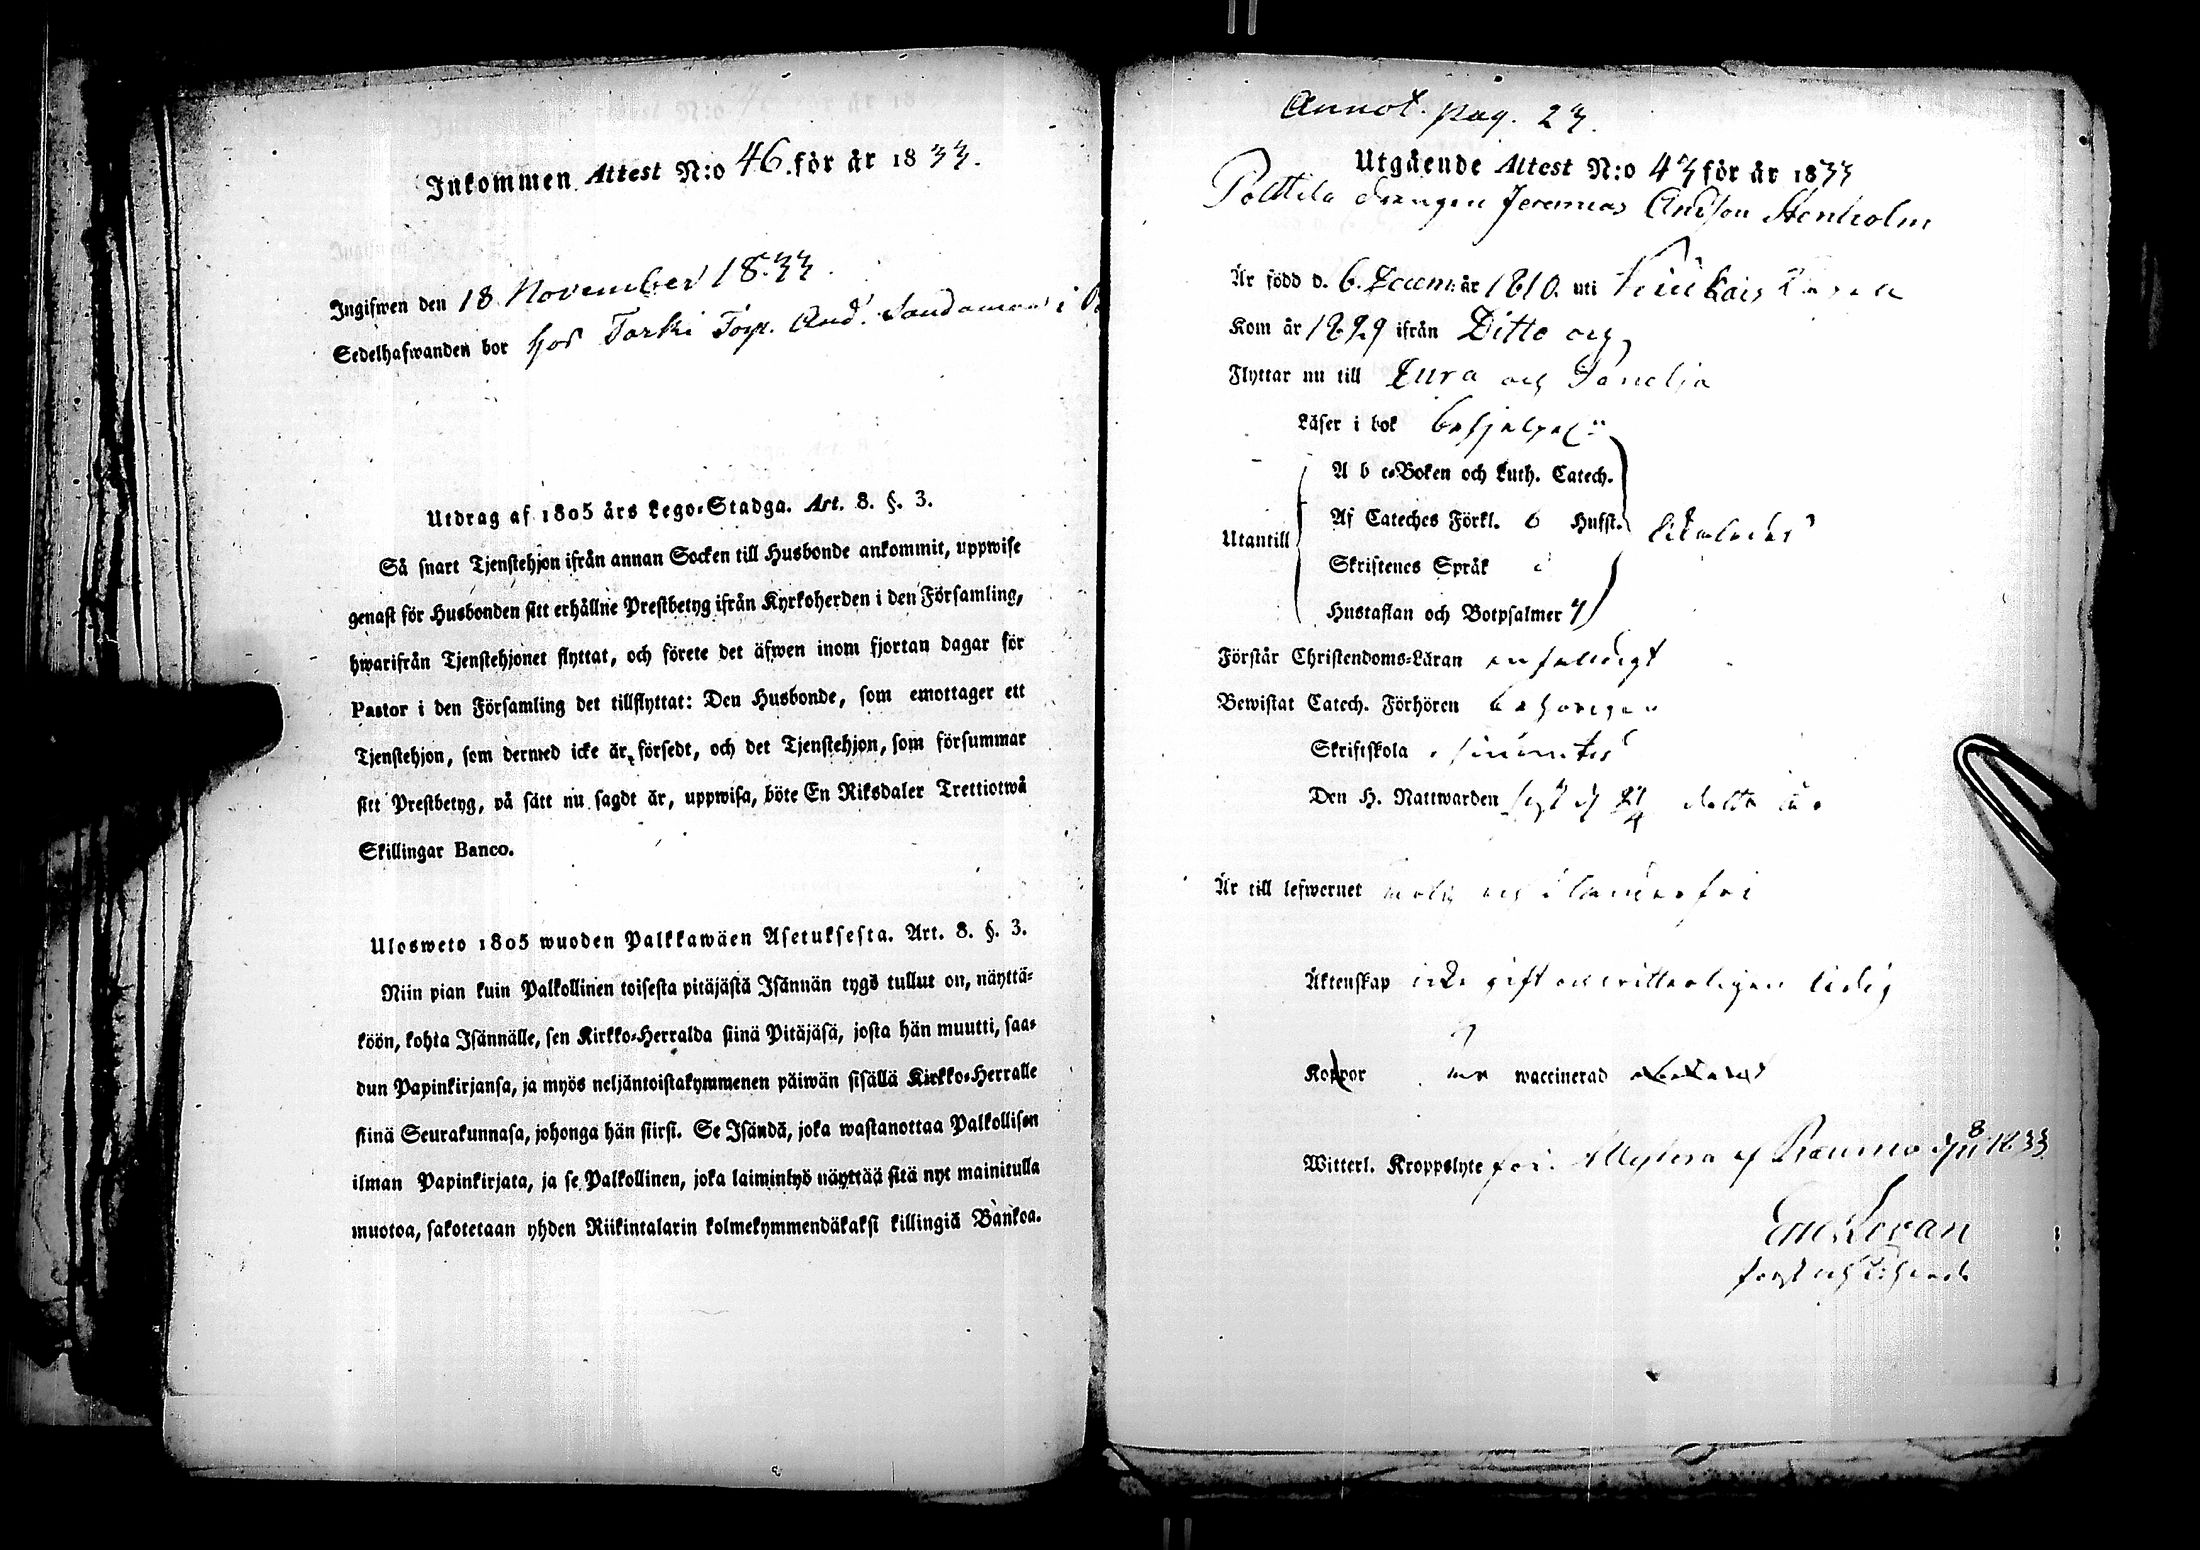 Inkommen Attest N:o 46 för år 1833.
Ingifwen den 18 November 1833.
Sedelhafwanden bor hos Torki Torp. And. Sandaman i
Utdrag af 1805 års Lego-Stadga. Art. 8. §. 3.
Så snart Tjenstehjon ifrån annan Socken till Husbonde ankommit, uppwise
genast för Husbonden sitt erhållne Prestbetyg ifrån Kyrkoherden i den Församling,
hwarifrån Tjenstehjonet flyttat, och förete det äfwen inom fjortan dagar för
Pastor i den Församling det tillflyttat: Den Husbonde, som emottager ett
Tjenstehjon, som dermed icke är försedt, och det Tjenstehjon, som försummar
sitt Prestbetyg, på sätt nu sagdt är, uppwisa, böte En Riksdaler Trettiotwå
Skillingar Banco.
Ulosweto 1805 wuoden Palkkawäen Asetuksesta. Art. 8. §. 3.
Niin pian kuin Palkollinen toisesta pitäjästä Isännän tygö tullut on, näyttä-
köön, kohta Isännälle, sen Kirkko-Herralda siinä Pitäjäsä, josta hän muutti, saa-
dun Papinkirjansa, ja myös neljäntoistakymmenen päiwän sisällä Kirkko-Herralle
siinä Seurakunnasa, johonga hän siirsi. Se Isändä, joka wastanottaa Palkollisen
ilman Papinkirjata, ja se Palkollinen, joka laiminlyö näyttää sitä nyt mainitulla
muotoa, sakotetaan yhden Riikintalarin kolmekymmendäkaksi killingiä Bankoa.
Annot. pag. 23.
Utgående Attest N:o 43 för år 1833
Polttila Drängen Jeremias Andsson Stenholm
Är född d. 6. Decem: år 1810. uti
Kom år 1829 ifrån Ditto och
Flyttar nu till Eura och
Läser i bok behjelpel:
A b c-Boken och Luth. Catech.
Af Cateches Förkl. 6 Hufst.
Utantill likaledes
Skriftenes Språk
Hustaflan och Botpsalmer 7
Förstår Christendoms-Läran enfaldigt
Bewistat Catech. Förhören behörigen
Skriftskola
Den H. Nattwarden sist d 21/4 detta år
Är till lefwernet och
Äktenskap icke gift en witterligen ledig
Koppor waccinerad
Witterl. Kroppslyte fri. af Raumo d 8 1833